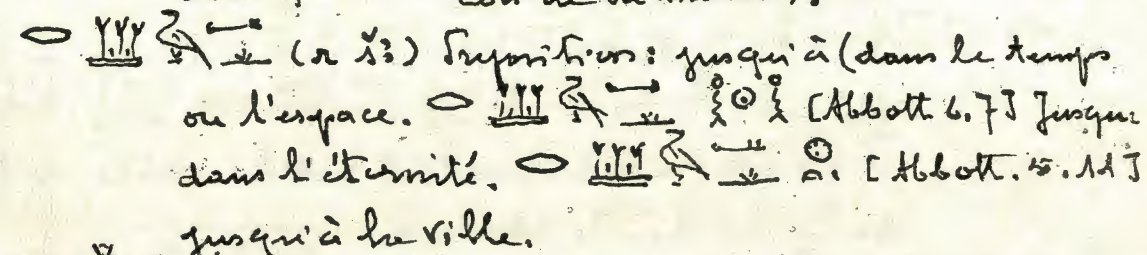 𓂋 𓆷 𓄿 𓂝 (r š3) Préposition: jusqu'à (dans le temps
ou l'espace. 𓂋 𓆷 𓄿 𓂝 𓎛𓇳𓎛 [Abbott 6.7] Jusque
dans l'éternité. 𓂋 𓆷 𓄿 𓂝 𓊖𓏏𓏤 [Abbott. 5.11]
jusqu'à la ville.